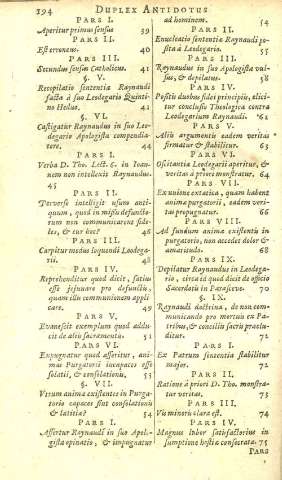 194 DUPLEX ANTIDOTUS
PARS I.
Aperitur primus sensus 39
PARS II.
Est erroneus. 40
PARS III.
Secundus sensus Catholicus. 41
§. V.
Recapilatio sententia Raynaudi
facta à suo Leodegario Quintino
Heduo. 41
§. VI.
Castigatur Raynaudus in suo Leodegario
Apologista compendiatore.
44
PARS I.
Verba D. Tho. Lect. 6. in Ioannem
non intellexit Raynaudus.
45
PARS II.
Perverse intelligit usum antiquum,
quod in missa defunctorum
non communicarent fideles,
& cur hoc? 46
PARS III.
Carpitur modus loquendi Leodegarii.
48
PARS IV.
Reprehenditur quod dicit, satius
esse jejunare pro defunctis,
quam illu communionem applicare.
49
PARS V.
Evanescit exemplum quod adducit
de aliis sacramentis. 51
PARS VI.
Expugnatur quod asserit, animas
Purgatorii incapaces esse
solatii, & consolationis. 53
§. VII.
Utrum anima existentes in Purgatorio
capaces sint consolationis
& latitia? 54
PARS I.
Assertur Raynaudi in suo Apologista
opinatio, & impugnatur
ad hominem. 54
PARS II.
Enucleatio sententia Raynaudi posita
à Leodegario. 55
PARS III.
Raynaudus in suo Apologista vulsus,
& depilatus. 58
PARS IV.
Positis duobus fidei principiis, elicitur
conclusio Theologica contra
Leodegarium Raynaudi. 61
PARS V.
Aliis argumentis eadem veritas
firmatur & stabilitur. 63
PARS VI.
Oscitantia Leodegarii aperitur, &
veritas à priori monstratur. 64
PARS VII.
Ex unione extatica, quam habent
anima purgatorii, eadem veritas
propugnatur. 66
PARS VIII.
Ad fundum anima existentis in
purgatorio, non accedet dolor &
amaritudo. 68
PARS IX.
Depilatus Raynaudus in Leodegario,
circa id quod dicit de officio
Sacerdotis in Parasceve. 70
§. IX.
Raynaudi doctrina, de non communicando
pro mortuis ex Patribus,
& conciliis sacris praecluditur.
72
PARS I.
Ex Patrum sententia stabilitur
major. 72
PARS II.
Ratione à priori D. Tho. monstratur
veritas. 73
PARS III.
Vis minoris clara est. 74
PARS IV.
Magnus labor satisfactorius in
sumptione hostia consecrata. 75
PARS